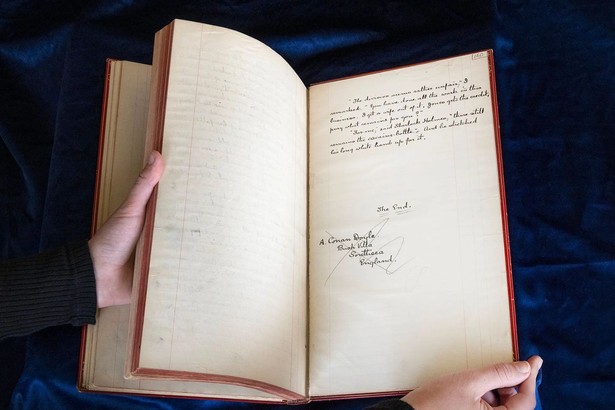 "The division seems rather unfair," I
remarked. "You have done all the work in this
business. I get a wife out of it, Jones gets the credit,
pray what remains for you?"
"For me," said Sherlock Holmes, "there still
remains the cocaine-bottle". And he stretched
his long white hand up for it.
The End.
A. Conan Doyle
Bush Villa
Southsea
England.